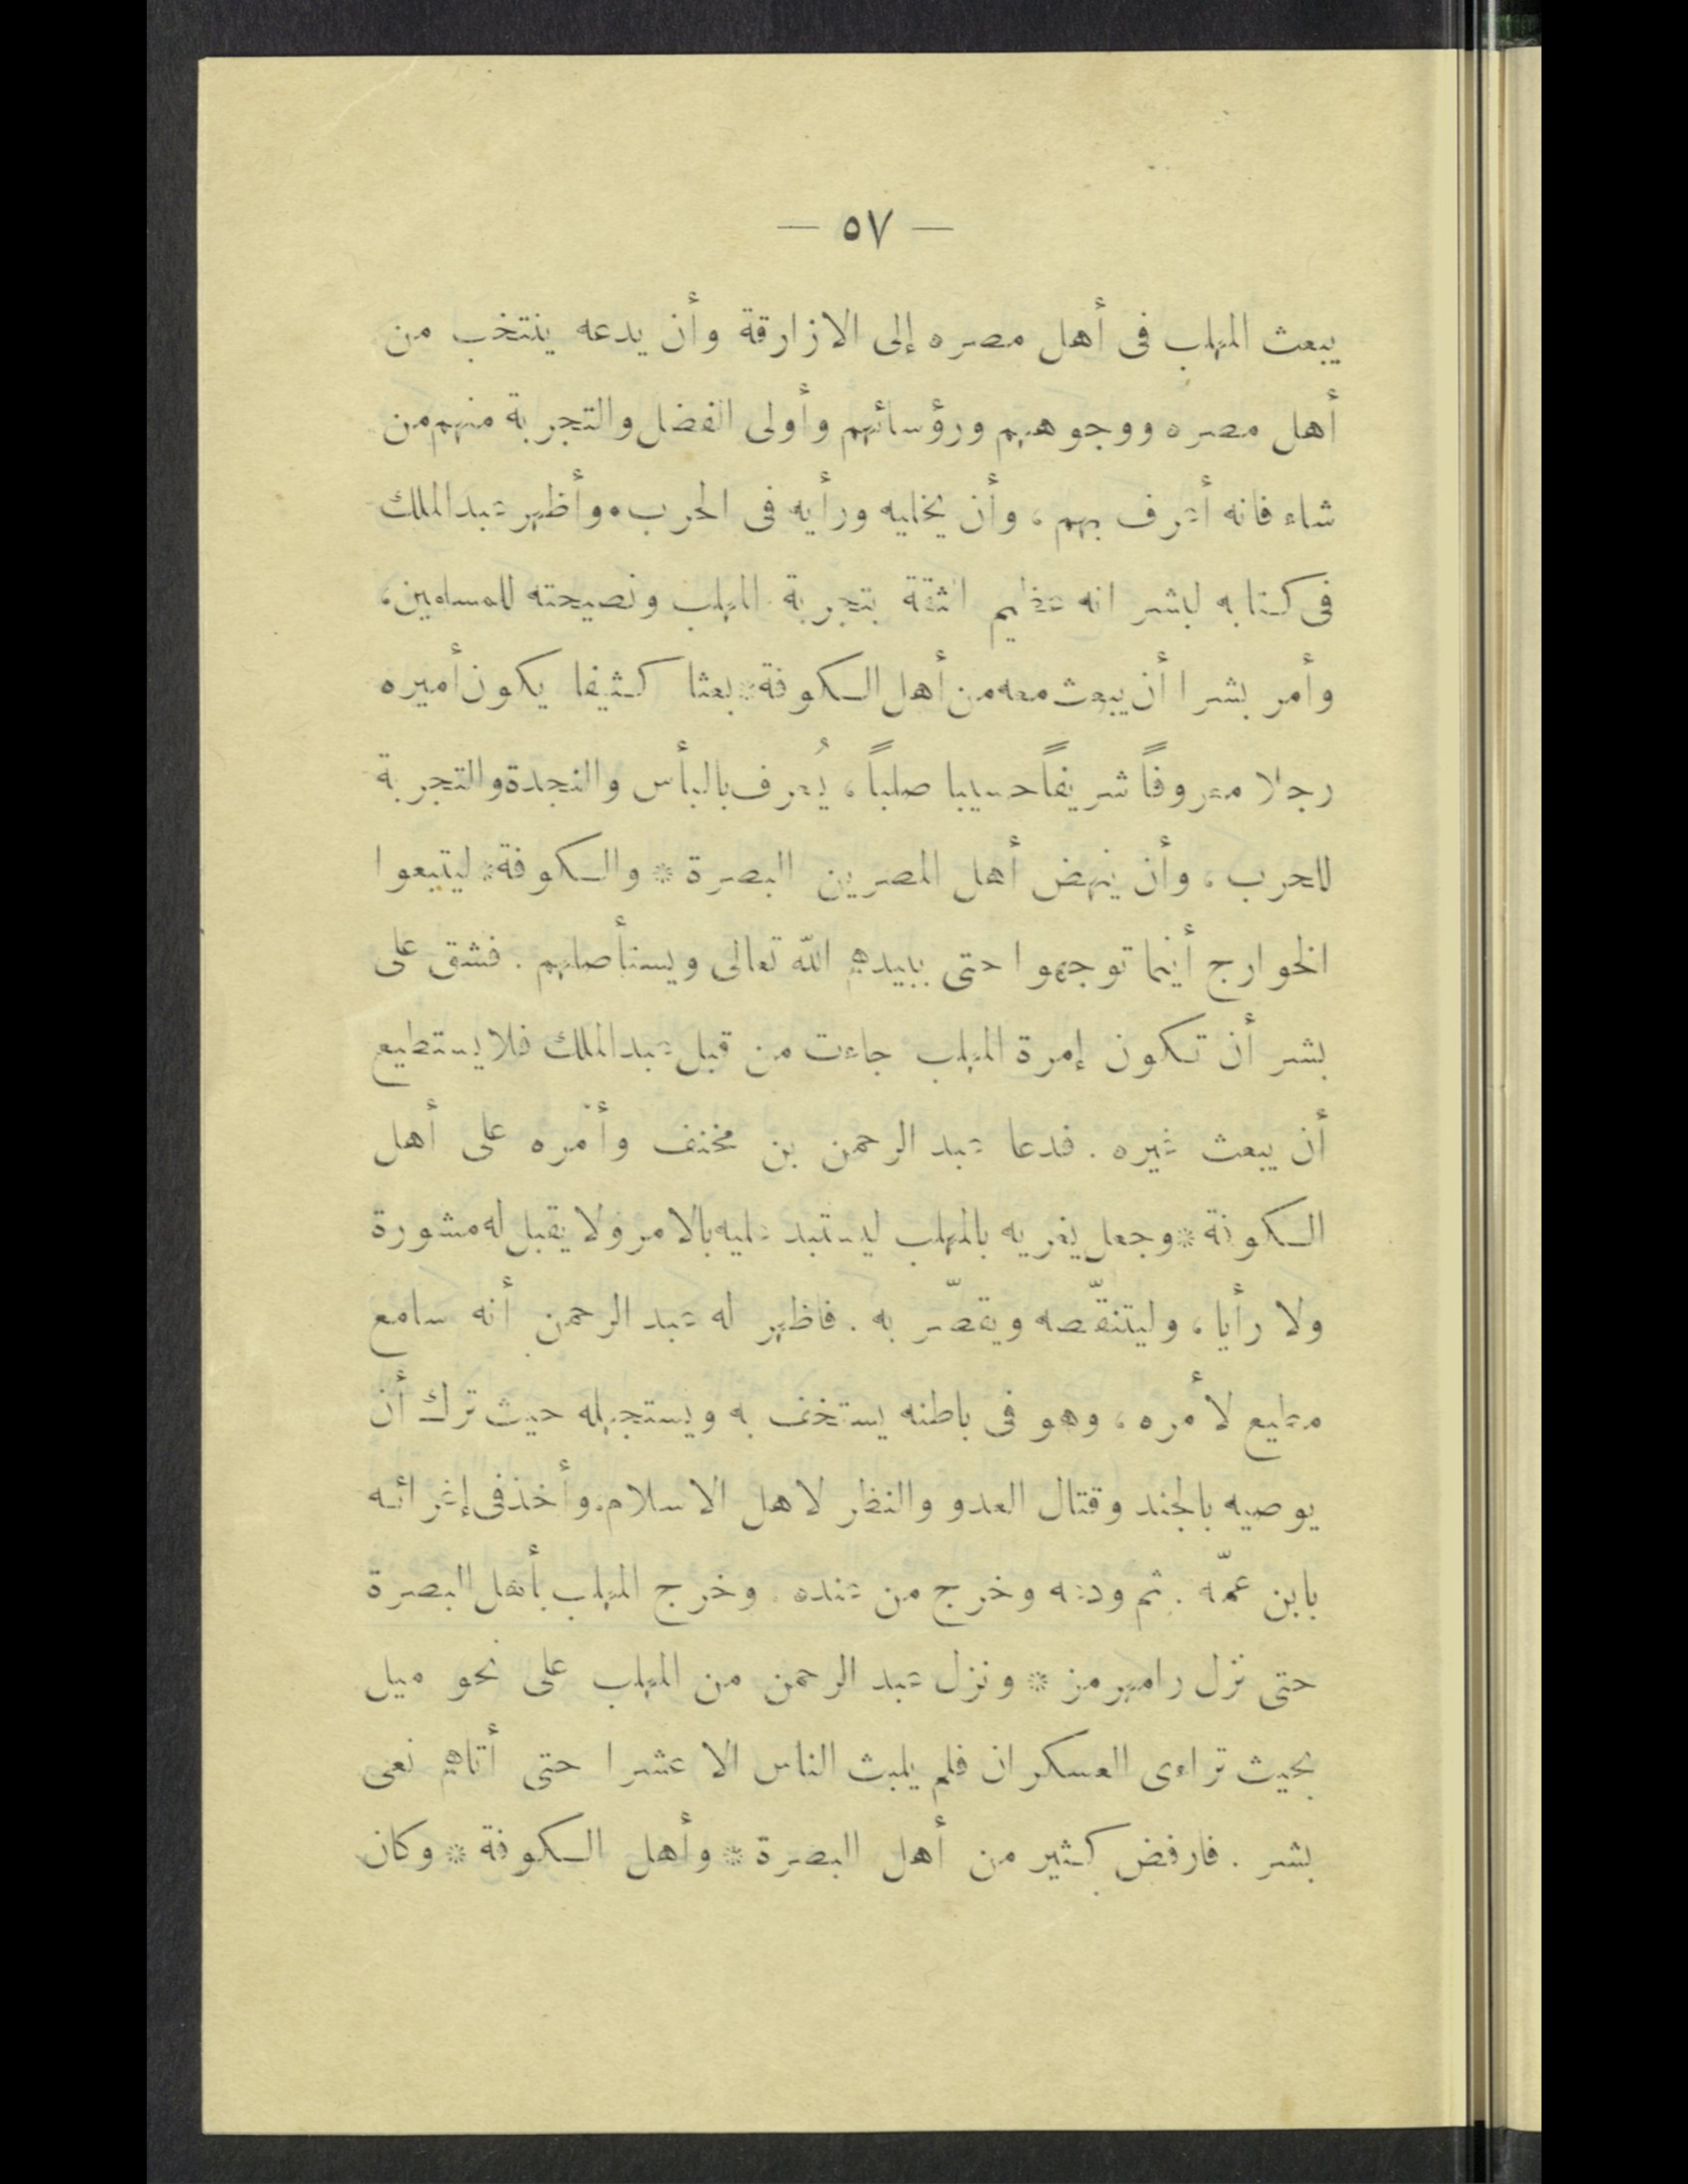 — ٥٧ —
يبعث المهلب فى أهل مصره إلى الازارقة وأن يدعه ينتخب من
أهل مصره ووجوههم ورؤسائهم وأولى الفضل والتجربة منهم من
شاء فانه أعرف بهم ، وأن يخليه ورأيه فى الحرب . وأظهر عبد الملك
فى كتابه لبشر انه عظيم الثقة بتجربة المهلب ونصيحته للمسلمين ،
وأمر بشرا أن يبعث معه من أهل الكوفة * بعثا كثيفا يكون أميره
رجلا معروفاً شريفاً حسيبا صلباً ، يُعرف بالبأس والنجدة والتجربة
للحرب ، وأن ينهض أهل المصرين البصرة * والكوفة * ليتبعوا
الخوارج أينما توجهوا حتى يبيدهم الله تعالى ويستأصلهم . فشق على
بشر أن تكون إمرة المهلب جاءت من قبل عبد الملك فلا يستطيع
أن يبعث غيره . فدعا عبد الرحمن بن مخنف وأمّره على أهل
الكوفة * وجعل يغريه بالمهلب ليستبد عليه بالامر ولا يقبل له مشورة
ولا رأيا ، وليتنقّصه ويقصّر به . فاظهر له عبد الرحمن أنه سامع
مطيع لأمره ، وهو فى باطنه يستخف به ويستجهله حيث ترك أن
يوصيه بالجند وقتال العدو والنظر لاهل الاسلام . وأخذ فى إغرائه
بابن عمّه . ثم ودعه وخرج من عنده . وخرج المهلب بأهل البصرة
حتى نزل رامهرمز * ونزل عبد الرحمن من المهلب على نحو ميل
بحيث تراءى العسكران فلم يلبث الناس الا عشرا حتى أتاهم نعى
بشر . فارفض كثير من أهل البصرة * وأهل الكوفة * وكان